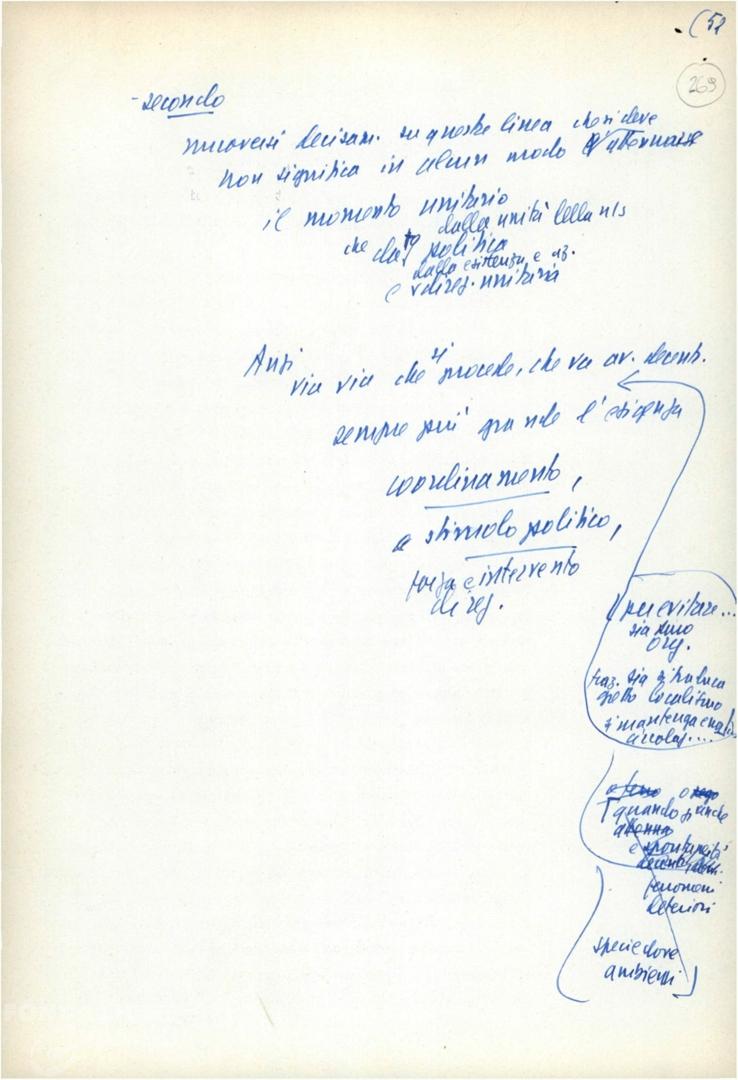 (58
269
- secondo
muoversi decisam. su queste linea che si deve
non significa in alcun modo attenuare
il momento unitario
dalla unità della n/s
che dato politica
dalla esistenza e az.
e direz. unitaria
Anzi
via via che si procede, che va av. decent.
sempre più grande l'esigenza
coordinamento,
a stimolo politico,
forza e intervento
direz.
per evitare...
sia
org.
traz. sia si traduca
localismo
si mantenga
circolaz....
o
quando si
e spontaneità
decent.
fenomeni
deteriori
specie dove
ambienti